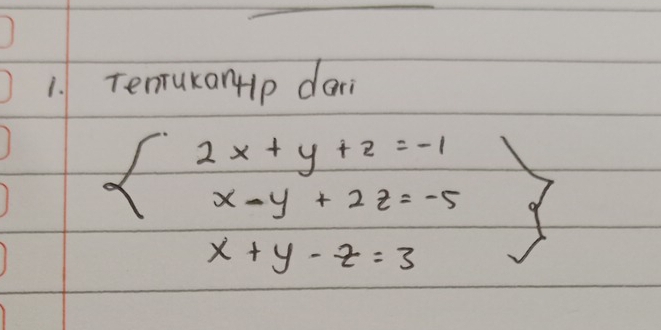 1. TentukanHp dari
2x + y + z = -1
x - y + 2z = -5
x + y - z = 3